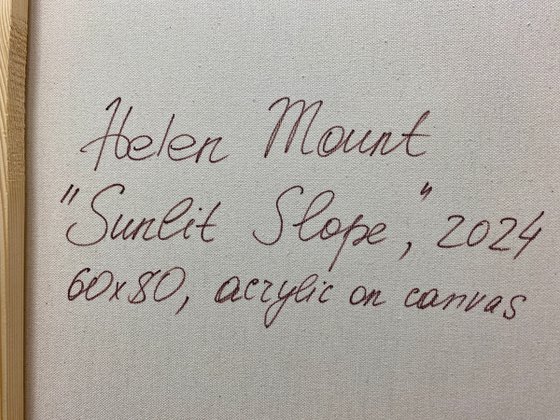 Helen Mount
"Sunlit Slope", 2024
60x80, acrylic on canvas